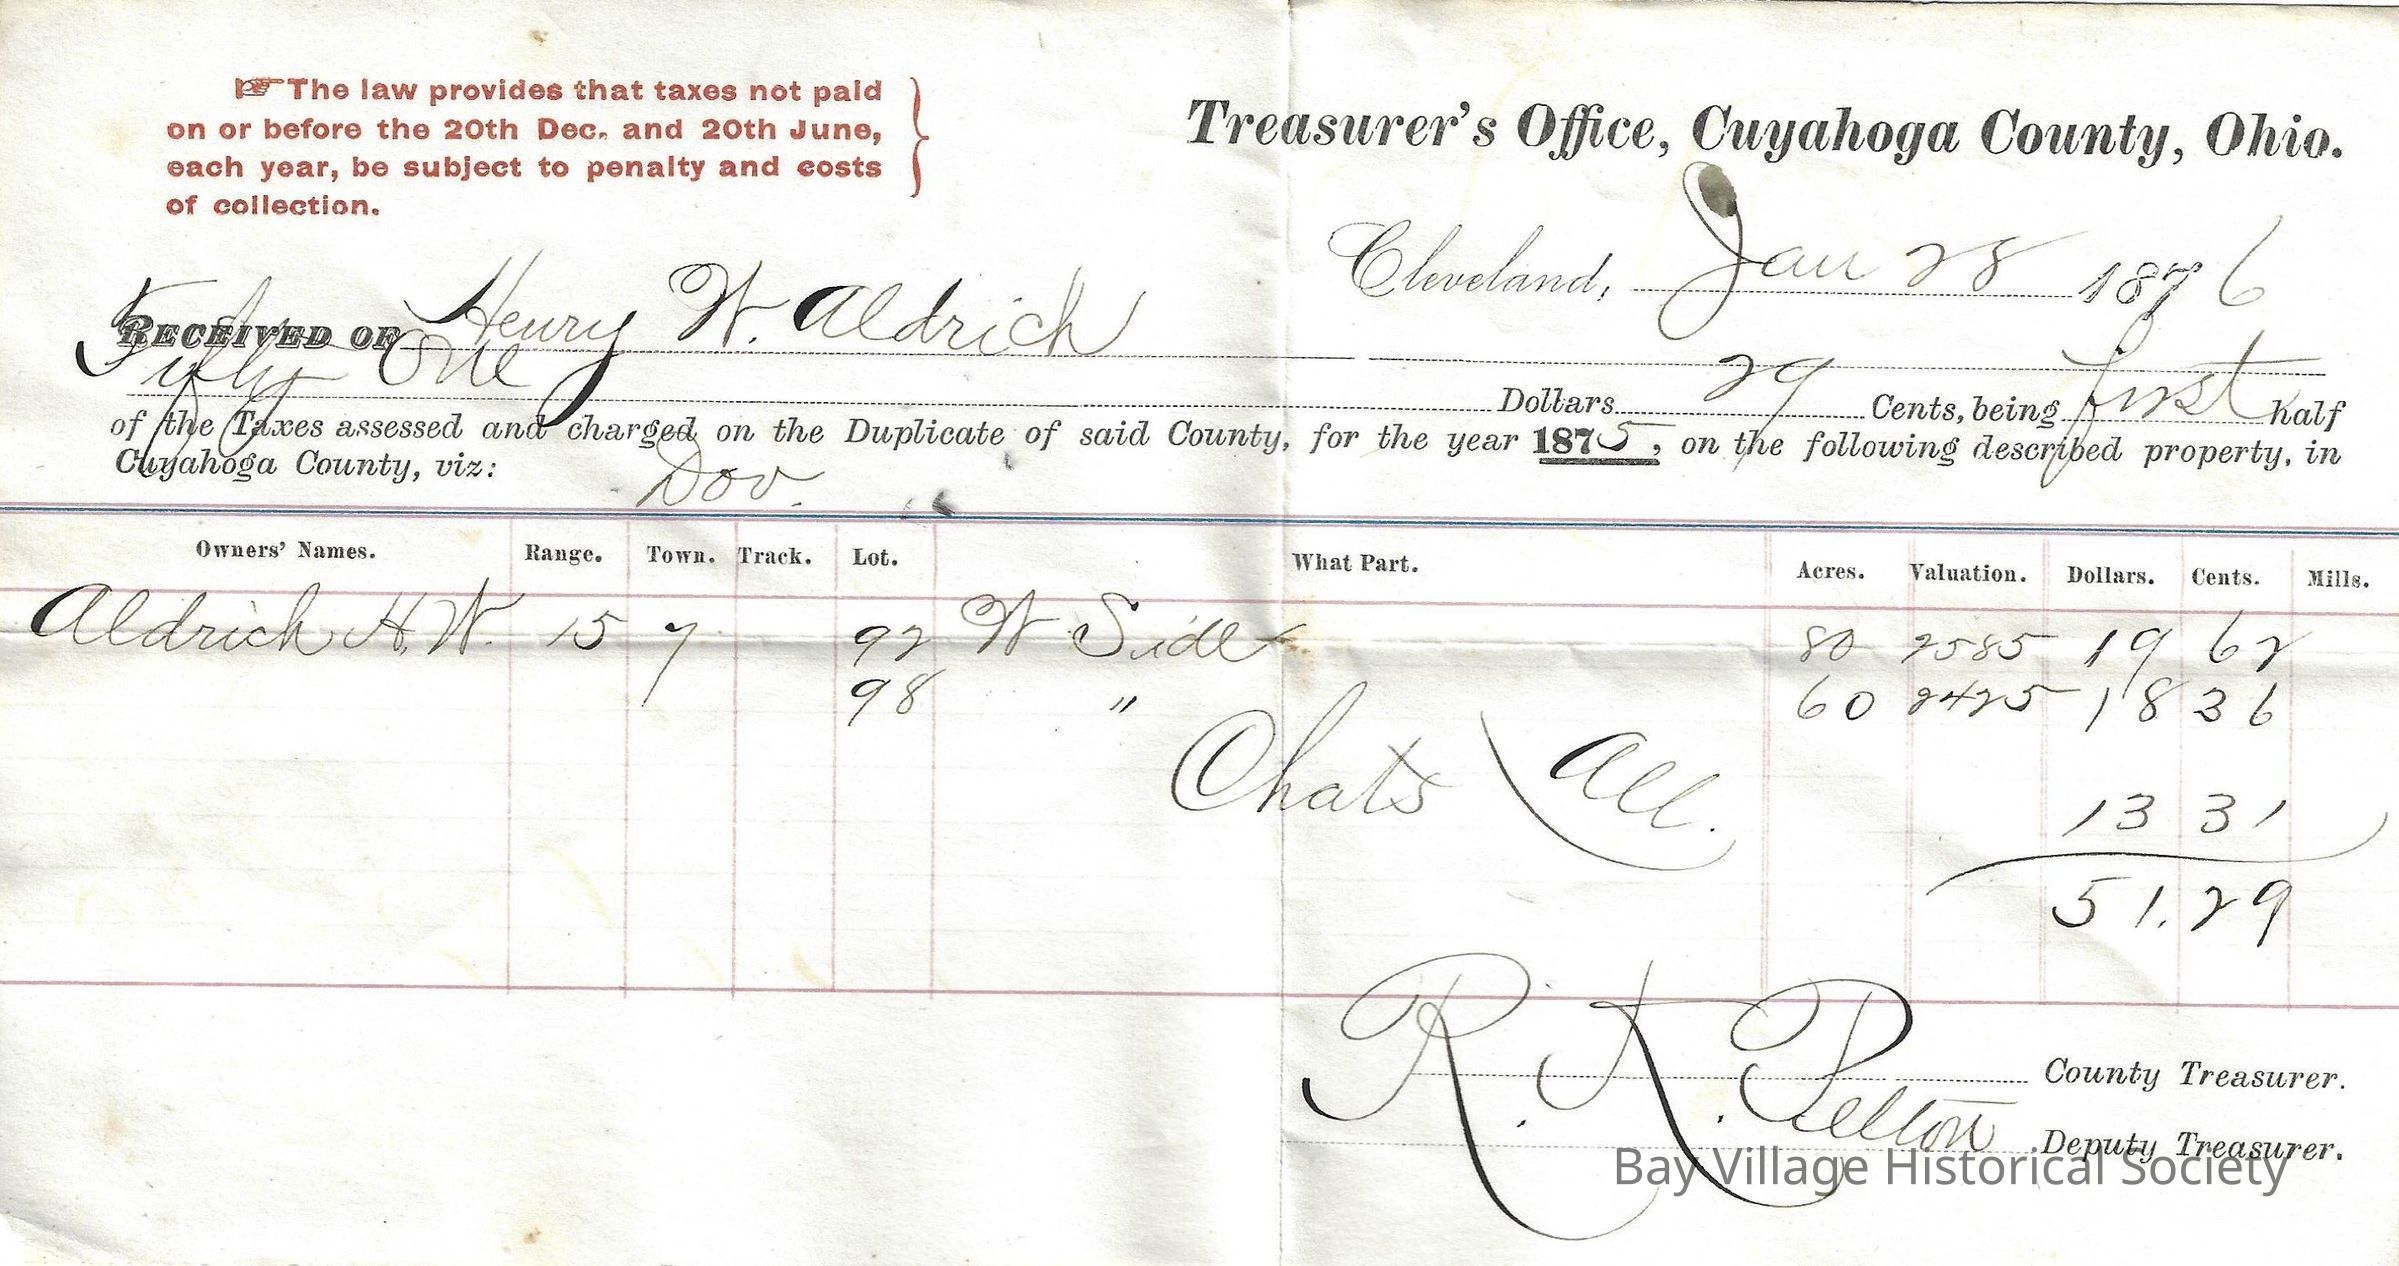 ☞ The law provides that taxes not paid
on or before the 20th Dec. and 20th June,
each year, be subject to penalty and costs
of collection.
Treasurer's Office, Cuyahoga County, Ohio.
Cleveland, Jan 28 1876
RECEIVED OF Henry W. Aldrich
Fifty One Dollars 29 Cents, being first half
of the Taxes assessed and charged on the Duplicate of said County, for the year 1875, on the following described property, in
Cuyahoga County, viz: Dov.
Owners' Names. Range. Town. Track. Lot. What Part. Acres. Valuation. Dollars. Cents. Mills.
Aldrich H. W. 15 7 92 W Side 80 2585 19 62
98 " 60 2425 18 36
Chats All. 13 31
51.29
R. K. Pelton County Treasurer.
Deputy Treasurer.
Bay Village Historical Society